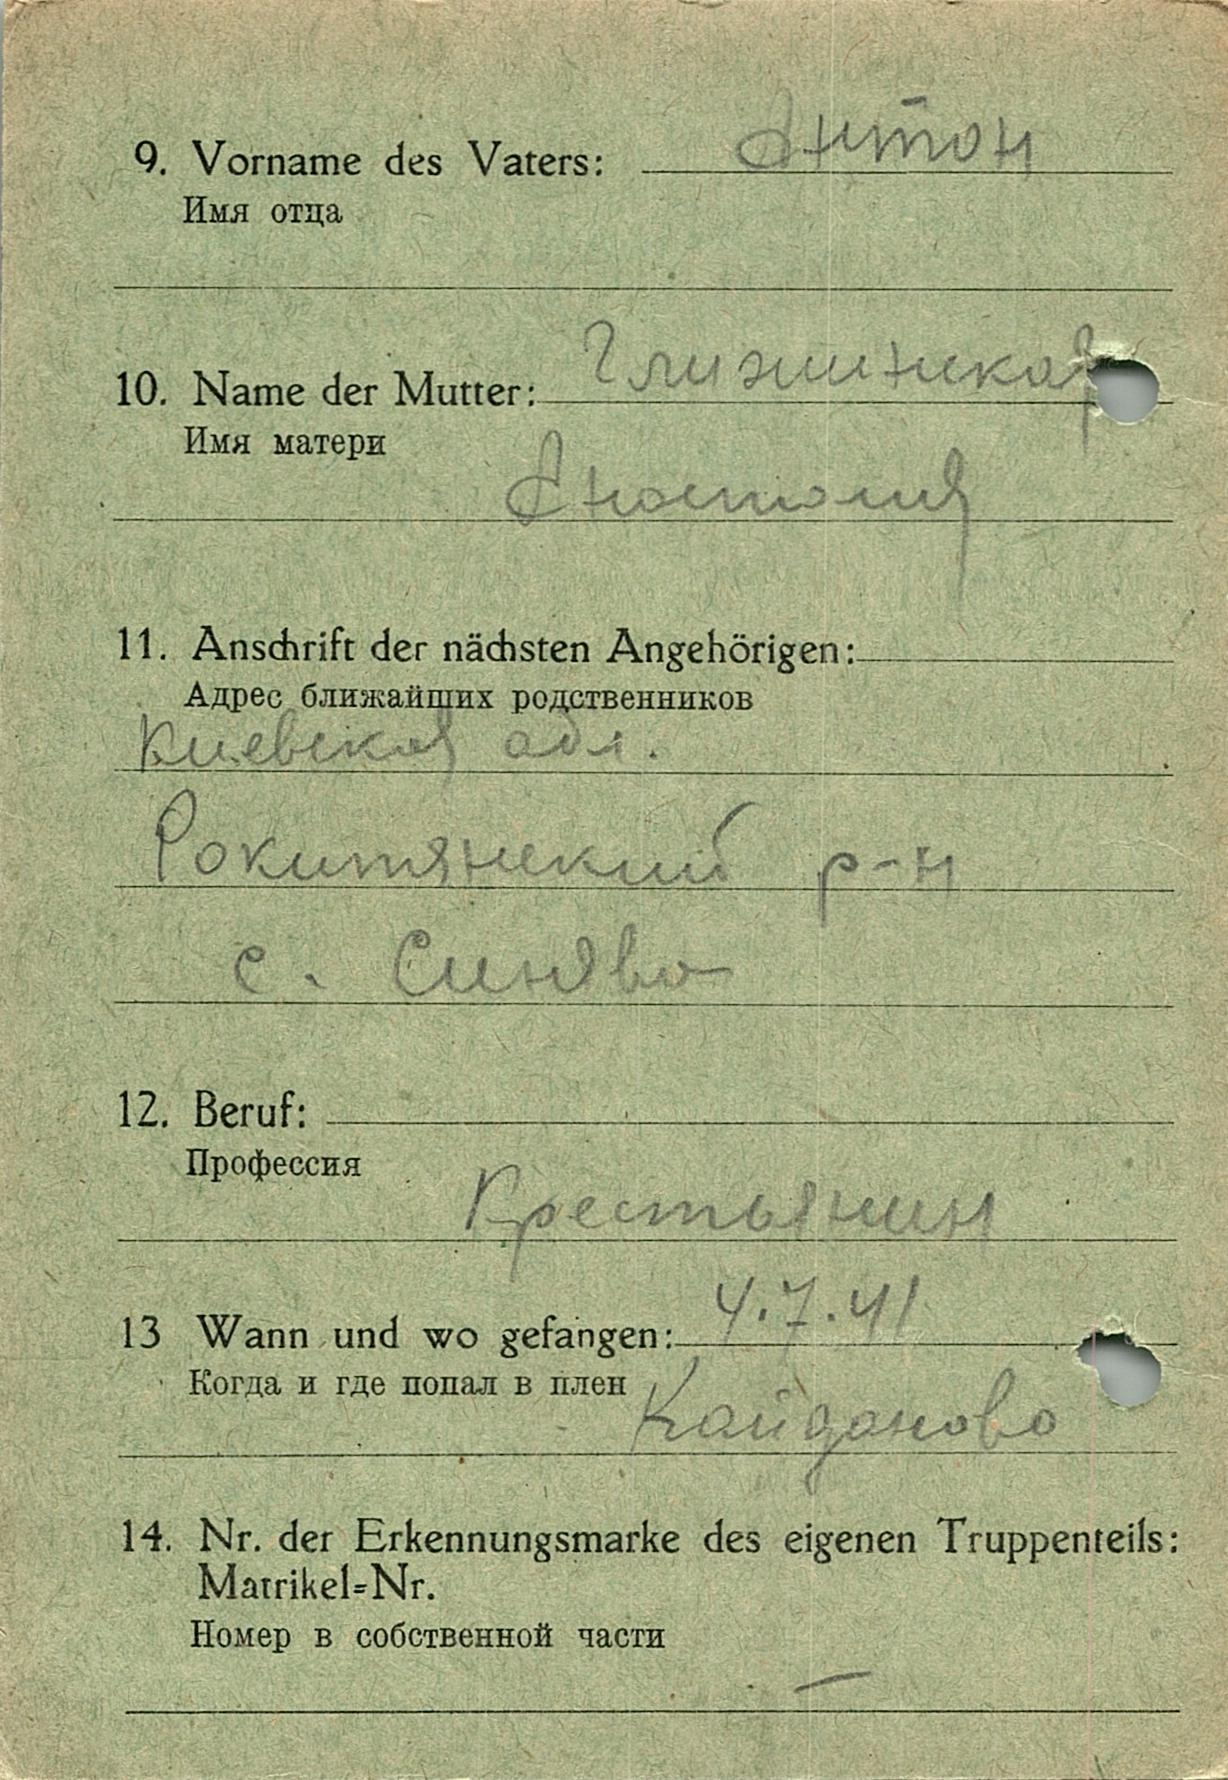 9. Vorname des Vaters: Антон
Имя отца
10. Name der Mutter:
Имя матери
Анатолия
11. Anschrift der nächsten Angehörigen:
Адрес ближайших родственников
Киевская обл.
Рокитянский р-н
с. Синява
12. Beruf:
Профессия
Крестьянин
13 Wann und wo gefangen: 4.7.41
Когда и где попал в плен
Кайданово
14. Nr. der Erkennungsmarke des eigenen Truppenteils:
Matrikel=Nr.
Номер в собственной части
—